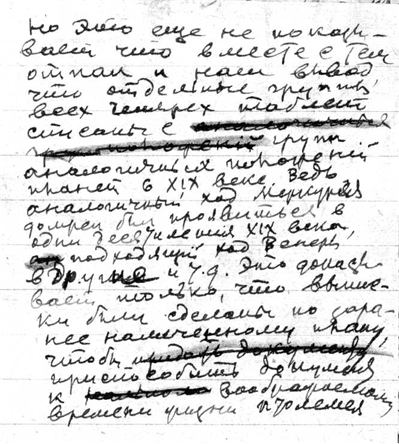 но это еще не показы-
вает что вместе с тем
отпал и наш вывод,
что отдельные группы
всех четырех таблет
списаны с аналогичных
групп
аналогичных покорений
планет в XIX веке. Ведь
аналогичный ход Меркурия
должен был проявиться в
одни десятилетия XIX века,
подходящий ход Венеры
в другие и т.д. Это доказы-
вает только, что выпис-
ки были сделаны по зара-
нее намеченному плану,
чтобы придать документу
приспособить документ
к воображаемому
времени жизни Птолемея